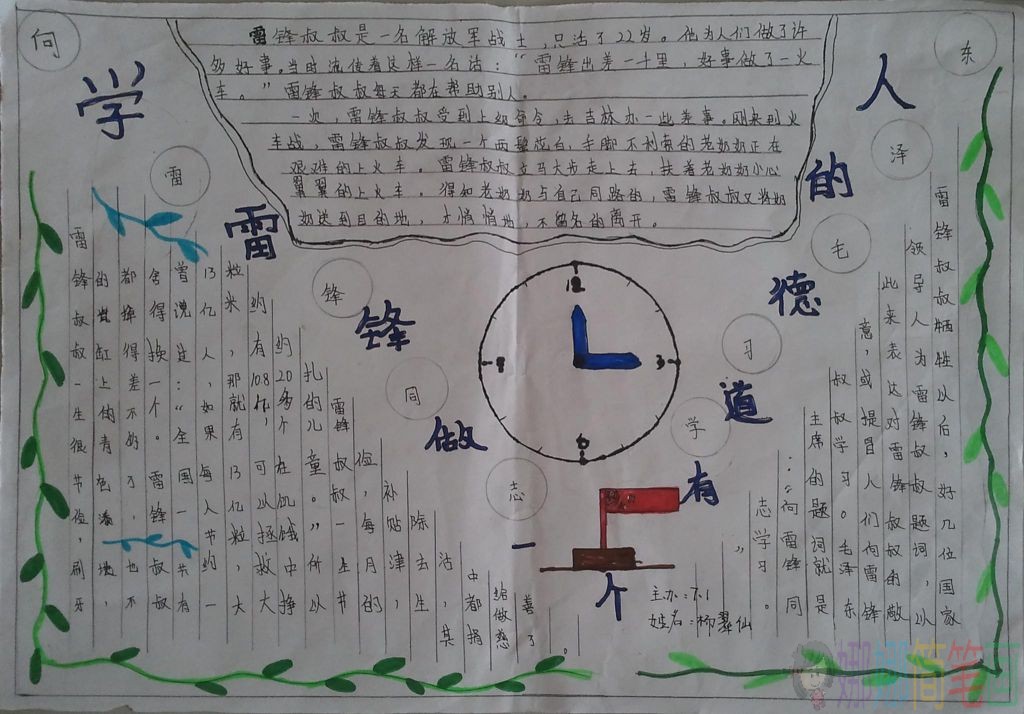 学雷锋做一个有道德的人
向雷锋同志学习
毛泽东
雷锋叔叔是一名解放军战士,只活了22岁。他为人们做了许
多好事。当时流传着这样一句话:“雷锋出差一千里,好事做了一火
车。”雷锋叔叔每天都在帮助别人。
一次,雷锋叔叔受到上级命令,去吉林办一些差事。刚来到火
车战,雷锋叔叔发现一个两鬓花白,手脚不利索的老奶奶正在
艰难的上火车。雷锋叔叔立马大步走上去,扶着老奶奶小心
翼翼的上火车。得知老奶奶与自己同路的,雷锋叔叔又将奶
奶送到目的地,才悄悄地,不留名的离开。
12
3
6
9
雷锋叔叔一生很节俭,刷牙
的
缸上的青
都掉得差不好了,也不
舍得换一个。雷锋叔叔
曾说过:“全国一节有
13亿人,如果每人节约一
粒米,那就有13亿粒,大
约有108
可以拯救大
约20多个在饥饿中挣
扎的儿童。”所以
雷锋叔叔一生节
俭,每月的
补贴津,
除去生
活,其
中都捐
给做慈
善了。
雷锋叔叔牺牲以后,好几位国家
领导人为雷锋叔叔题词,以
此来表达对雷锋叔叔的敬
意,或提冒人们向雷锋
叔叔学习。毛泽东
主席的题词就是
:“向雷锋同
志学习。
”
主办:7.1
姓名:柳翠仙
娜娜简笔画